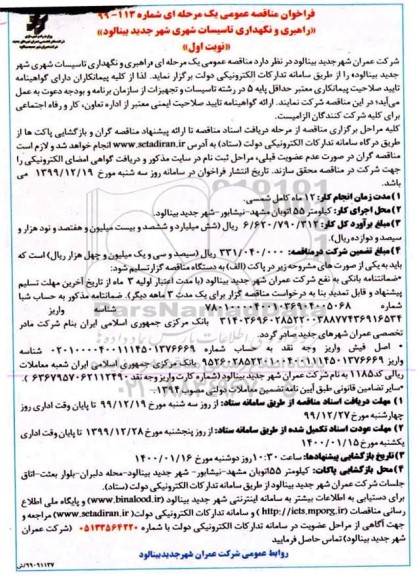 فراخوان مناقصه عمومی یک مرحله ای شماره ۱۱۳-۹۹
«راهبری و نگهداری تاسیسات شهری شهر جدید بینالود»
«نوبت اول»
شرکت عمران شهر جدید بینالود در نظر دارد مناقصه عمومی یک مرحله ای «راهبری و نگهداری تاسیسات شهری شهر
جدید بینالود» را از طریق سامانه تدارکات الکترونیکی دولت برگزار نماید. لذا از کلیه پیمانکاران دارای گواهینامه
تایید صلاحیت پیمانکاری معتبر حداقل پایه ۵ در رشته تاسیسات و تجهیزات از سازمان برنامه و بودجه دعوت به عمل
می‌آید؛ در این مناقصه شرکت نمایند. ارائه گواهینامه تایید صلاحیت ایمنی معتبر از اداره تعاون، کار و رفاه اجتماعی
برای کلیه شرکت کنندگان الزامیست.
کلیه مراحل برگزاری مناقصه از مرحله دریافت اسناد مناقصه تا ارائه پیشنهاد مناقصه گران و بازگشایی پاکت ها از
طریق درگاه سامانه تدارکات الکترونیکی دولت (ستاد) به آدرس www.setadiran.ir انجام خواهد شد و لازم است
مناقصه گران در صورت عدم عضویت قبلی، مراحل ثبت نام در سایت مذکور و دریافت گواهی امضای الکترونیکی را
جهت شرکت در مناقصه محقق سازند. تاریخ انتشار فراخوان در سامانه روز سه شنبه مورخ ۱۳۹۹/۱۲/۱۹ می
باشد.
۱) مدت زمان انجام کار: ۱۲ ماه کامل شمسی.
۲) محل اجرای کار: کیلومتر ۵۵ اتوبان مشهد-نیشابور-شهر جدید بینالود.
۳) مبلغ برآورد کل کار: ۶/۶۲۰/۷۹۰/۳۱۲ ریال (شش میلیارد و ششصد و بیست میلیون و هفتصد و نود هزار و
سیصد و دوازده ریال).
۴) مبلغ تضمین شرکت در مناقصه: ۳۳۱/۰۴۰/۰۰۰ ریال (سیصد و سی و یک میلیون و چهل هزار ریال) است که
باید به یکی از صورت های مشروحه زیر در پاکت (الف) به دستگاه مناقصه گزار تسلیم شود:
*ضمانتنامه بانکی به نفع شرکت عمران شهر جدید بینالود (با مدت اعتبار اولیه ۳ ماه از تاریخ آخرین مهلت تسلیم
پیشنهاد و قابل تمدید بنا به درخواست مناقصه گزار برای یک مدت ۳ ماهه دیگر). ضمانتنامه مذکور به حساب شبا
شماره شناسه واریز
بانک مرکزی جمهوری اسلامی ایران بنام شرکت مادر
تخصصی عمران شهرهای جدید صادر گردد.
* اصل فیش واریز وجه نقد به حساب شماره شناسه
واریز بانک مرکزی جمهوری اسلامی ایران شعبه معاملات
ریالی کد ۱۱۸۵ به نام شرکت عمران شهر جدید بینالود (شماره کارت واریز وجه نقد ).
*سایر تضامین قانونی طبق آیین نامه تضمین معاملات دولتی مصوب ۱۳۹۴.
۱) مهلت دریافت اسناد مناقصه از طریق سامانه ستاد: از روز سه شنبه مورخ ۹۹/۱۲/۱۹ تا پایان وقت اداری روز
چهارشنبه مورخ ۹۹/۱۲/۲۷
۲) مهلت عودت اسناد تکمیل شده از طریق سامانه ستاد: از روز پنجشنبه مورخ ۹۹/۱۲/۲۸ تا پایان وقت اداری
یکشنبه مورخ ۱۴۰۰/۰۱/۱۵
۳) تاریخ بازگشایی پیشنهادها: ساعت ۱۰:۳۰ روز دوشنبه مورخ ۱۴۰۰/۰۱/۱۶
۴) محل بازگشایی پاکات: کیلومتر ۵۵ اتوبان مشهد-نیشابور- شهر جدید بینالود-محله دلبران-بلوار بعثت-اتاق
جلسات شرکت عمران شهر جدید بینالود از طریق سامانه تدارکات الکترونیکی دولت (ستاد).
برای دستیابی به اطلاعات بیشتر به سامانه اینترنتی شهر جدید بینالود (www.binalood.ir) و پایگاه ملی اطلاع
رسانی مناقصات (http://iets.mporg.ir) و سامانه تدارکات الکترونیکی دولت (www.setadiran.ir) مراجعه و
جهت آگاهی از مراحل عضویت در سامانه تدارکات الکترونیکی دولت با شماره ۰۵۱۳۳۵۶۴۲۲۰ (شرکت عمران
شهر جدید بینالود) تماس حاصل فرمایید
روابط عمومی شرکت عمران شهر جدید بینالود
۹۹۰۹۱۱۳۷/ش